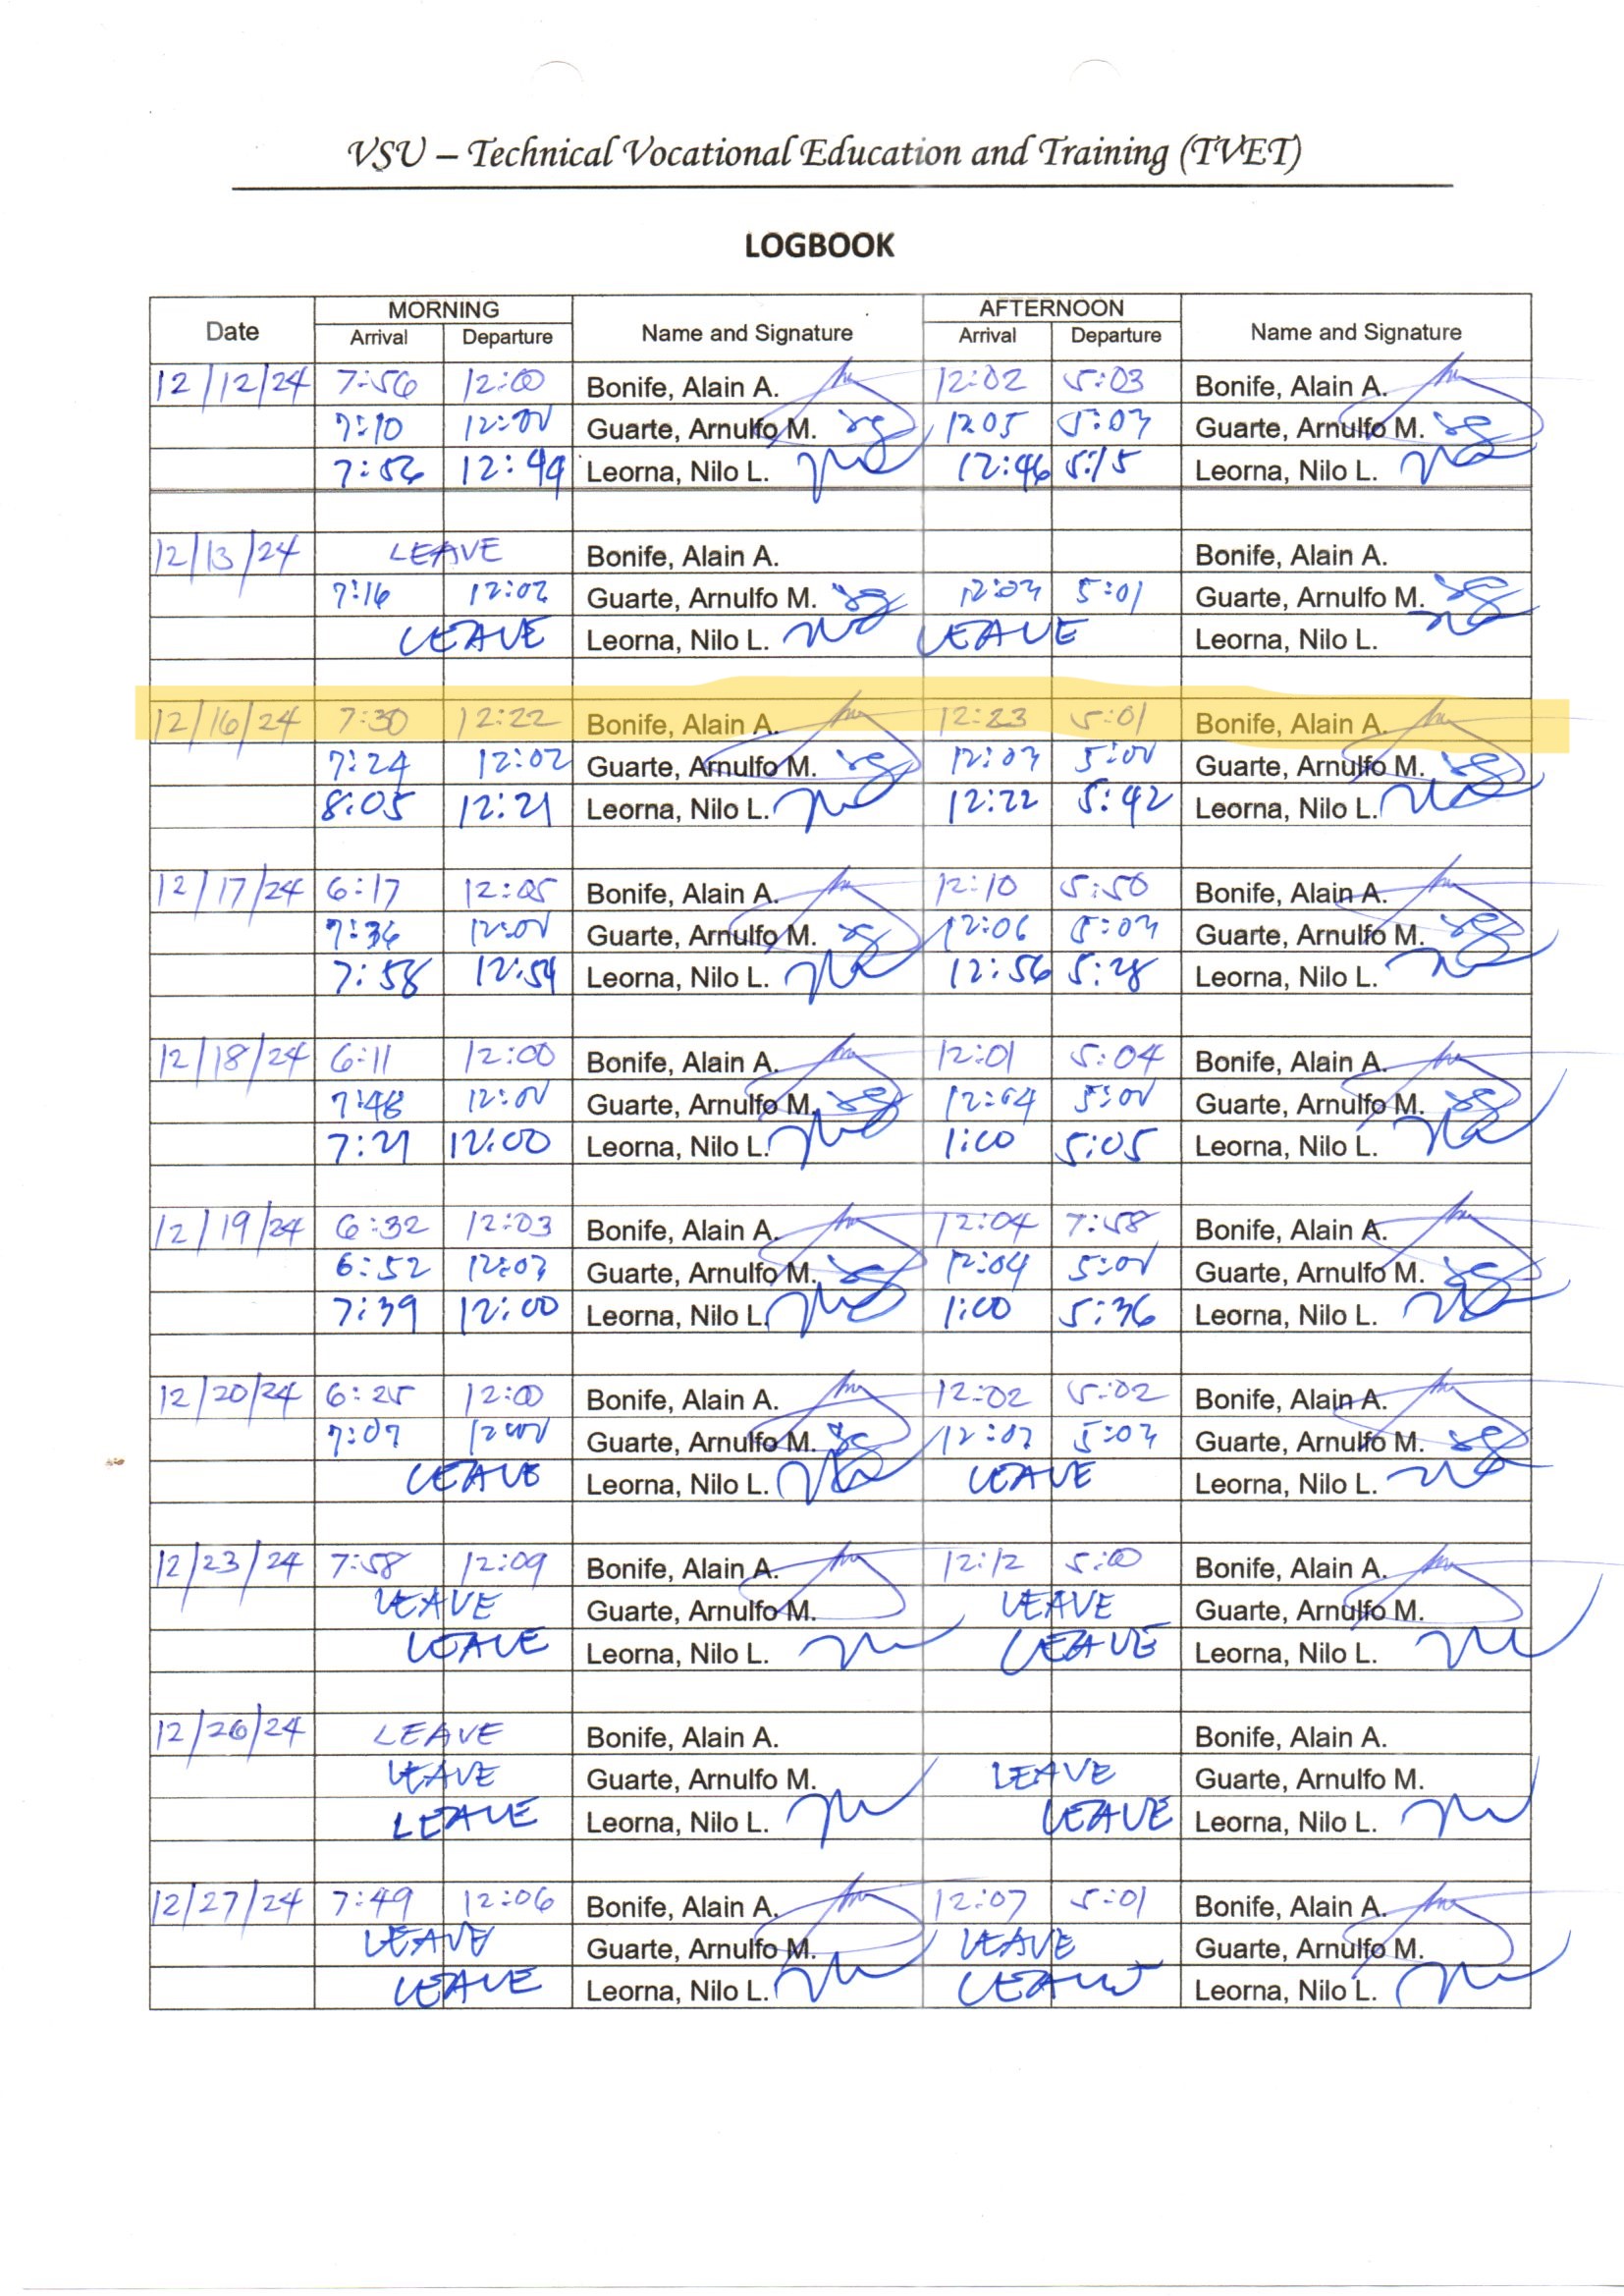 VSU – Technical Vocational Education and Training (TVET)
LOGBOOK
Date MORNING Name and Signature AFTERNOON Name and Signature
Arrival Departure Arrival Departure
12/12/24 7:56 12:00 Bonife, Alain A. 12:02 5:03 Bonife, Alain A.
7:10 Guarte, Arnulfo M. 1205 5:03 Guarte, Arnulfo M.
7:56 12:44 Leorna, Nilo L. 12:46 5:15 Leorna, Nilo L.
12/13/24 LEAVE Bonife, Alain A. Bonife, Alain A.
7:16 12:02 Guarte, Arnulfo M. 12:03 5:01 Guarte, Arnulfo M.
LEAVE Leorna, Nilo L. LEAVE Leorna, Nilo L.
12/16/24 7:30 12:22 Bonife, Alain A. 12:23 5:01 Bonife, Alain A.
7:24 12:02 Guarte, Arnulfo M. 12:03 Guarte, Arnulfo M.
8:05 12:21 Leorna, Nilo L. 12:22 5:42 Leorna, Nilo L.
12/17/24 6:17 12:05 Bonife, Alain A. 12:10 5:50 Bonife, Alain A.
7:36 Guarte, Arnulfo M. 12:06 5:03 Guarte, Arnulfo M.
7:58 12:54 Leorna, Nilo L. 12:56 5:28 Leorna, Nilo L.
12/18/24 6:11 12:00 Bonife, Alain A. 12:01 5:04 Bonife, Alain A.
7:48 Guarte, Arnulfo M. 12:04 Guarte, Arnulfo M.
7:21 12:00 Leorna, Nilo L. 1:00 5:05 Leorna, Nilo L.
12/19/24 6:32 12:03 Bonife, Alain A. 12:04 7:58 Bonife, Alain A.
6:52 12:03 Guarte, Arnulfo M. 12:04 Guarte, Arnulfo M.
7:39 12:00 Leorna, Nilo L. 1:00 5:36 Leorna, Nilo L.
12/20/24 6:25 12:00 Bonife, Alain A. 12:02 5:02 Bonife, Alain A.
7:07 Guarte, Arnulfo M. 12:03 5:03 Guarte, Arnulfo M.
LEAVE Leorna, Nilo L. LEAVE Leorna, Nilo L.
12/23/24 7:58 12:09 Bonife, Alain A. 12:12 5:00 Bonife, Alain A.
LEAVE Guarte, Arnulfo M. LEAVE Guarte, Arnulfo M.
LEAVE Leorna, Nilo L. LEAVE Leorna, Nilo L.
12/26/24 LEAVE Bonife, Alain A. Bonife, Alain A.
LEAVE Guarte, Arnulfo M. LEAVE Guarte, Arnulfo M.
LEAVE Leorna, Nilo L. LEAVE Leorna, Nilo L.
12/27/24 7:49 12:06 Bonife, Alain A. 12:07 5:01 Bonife, Alain A.
LEAVE Guarte, Arnulfo M. LEAVE Guarte, Arnulfo M.
LEAVE Leorna, Nilo L. LEAVE Leorna, Nilo L.